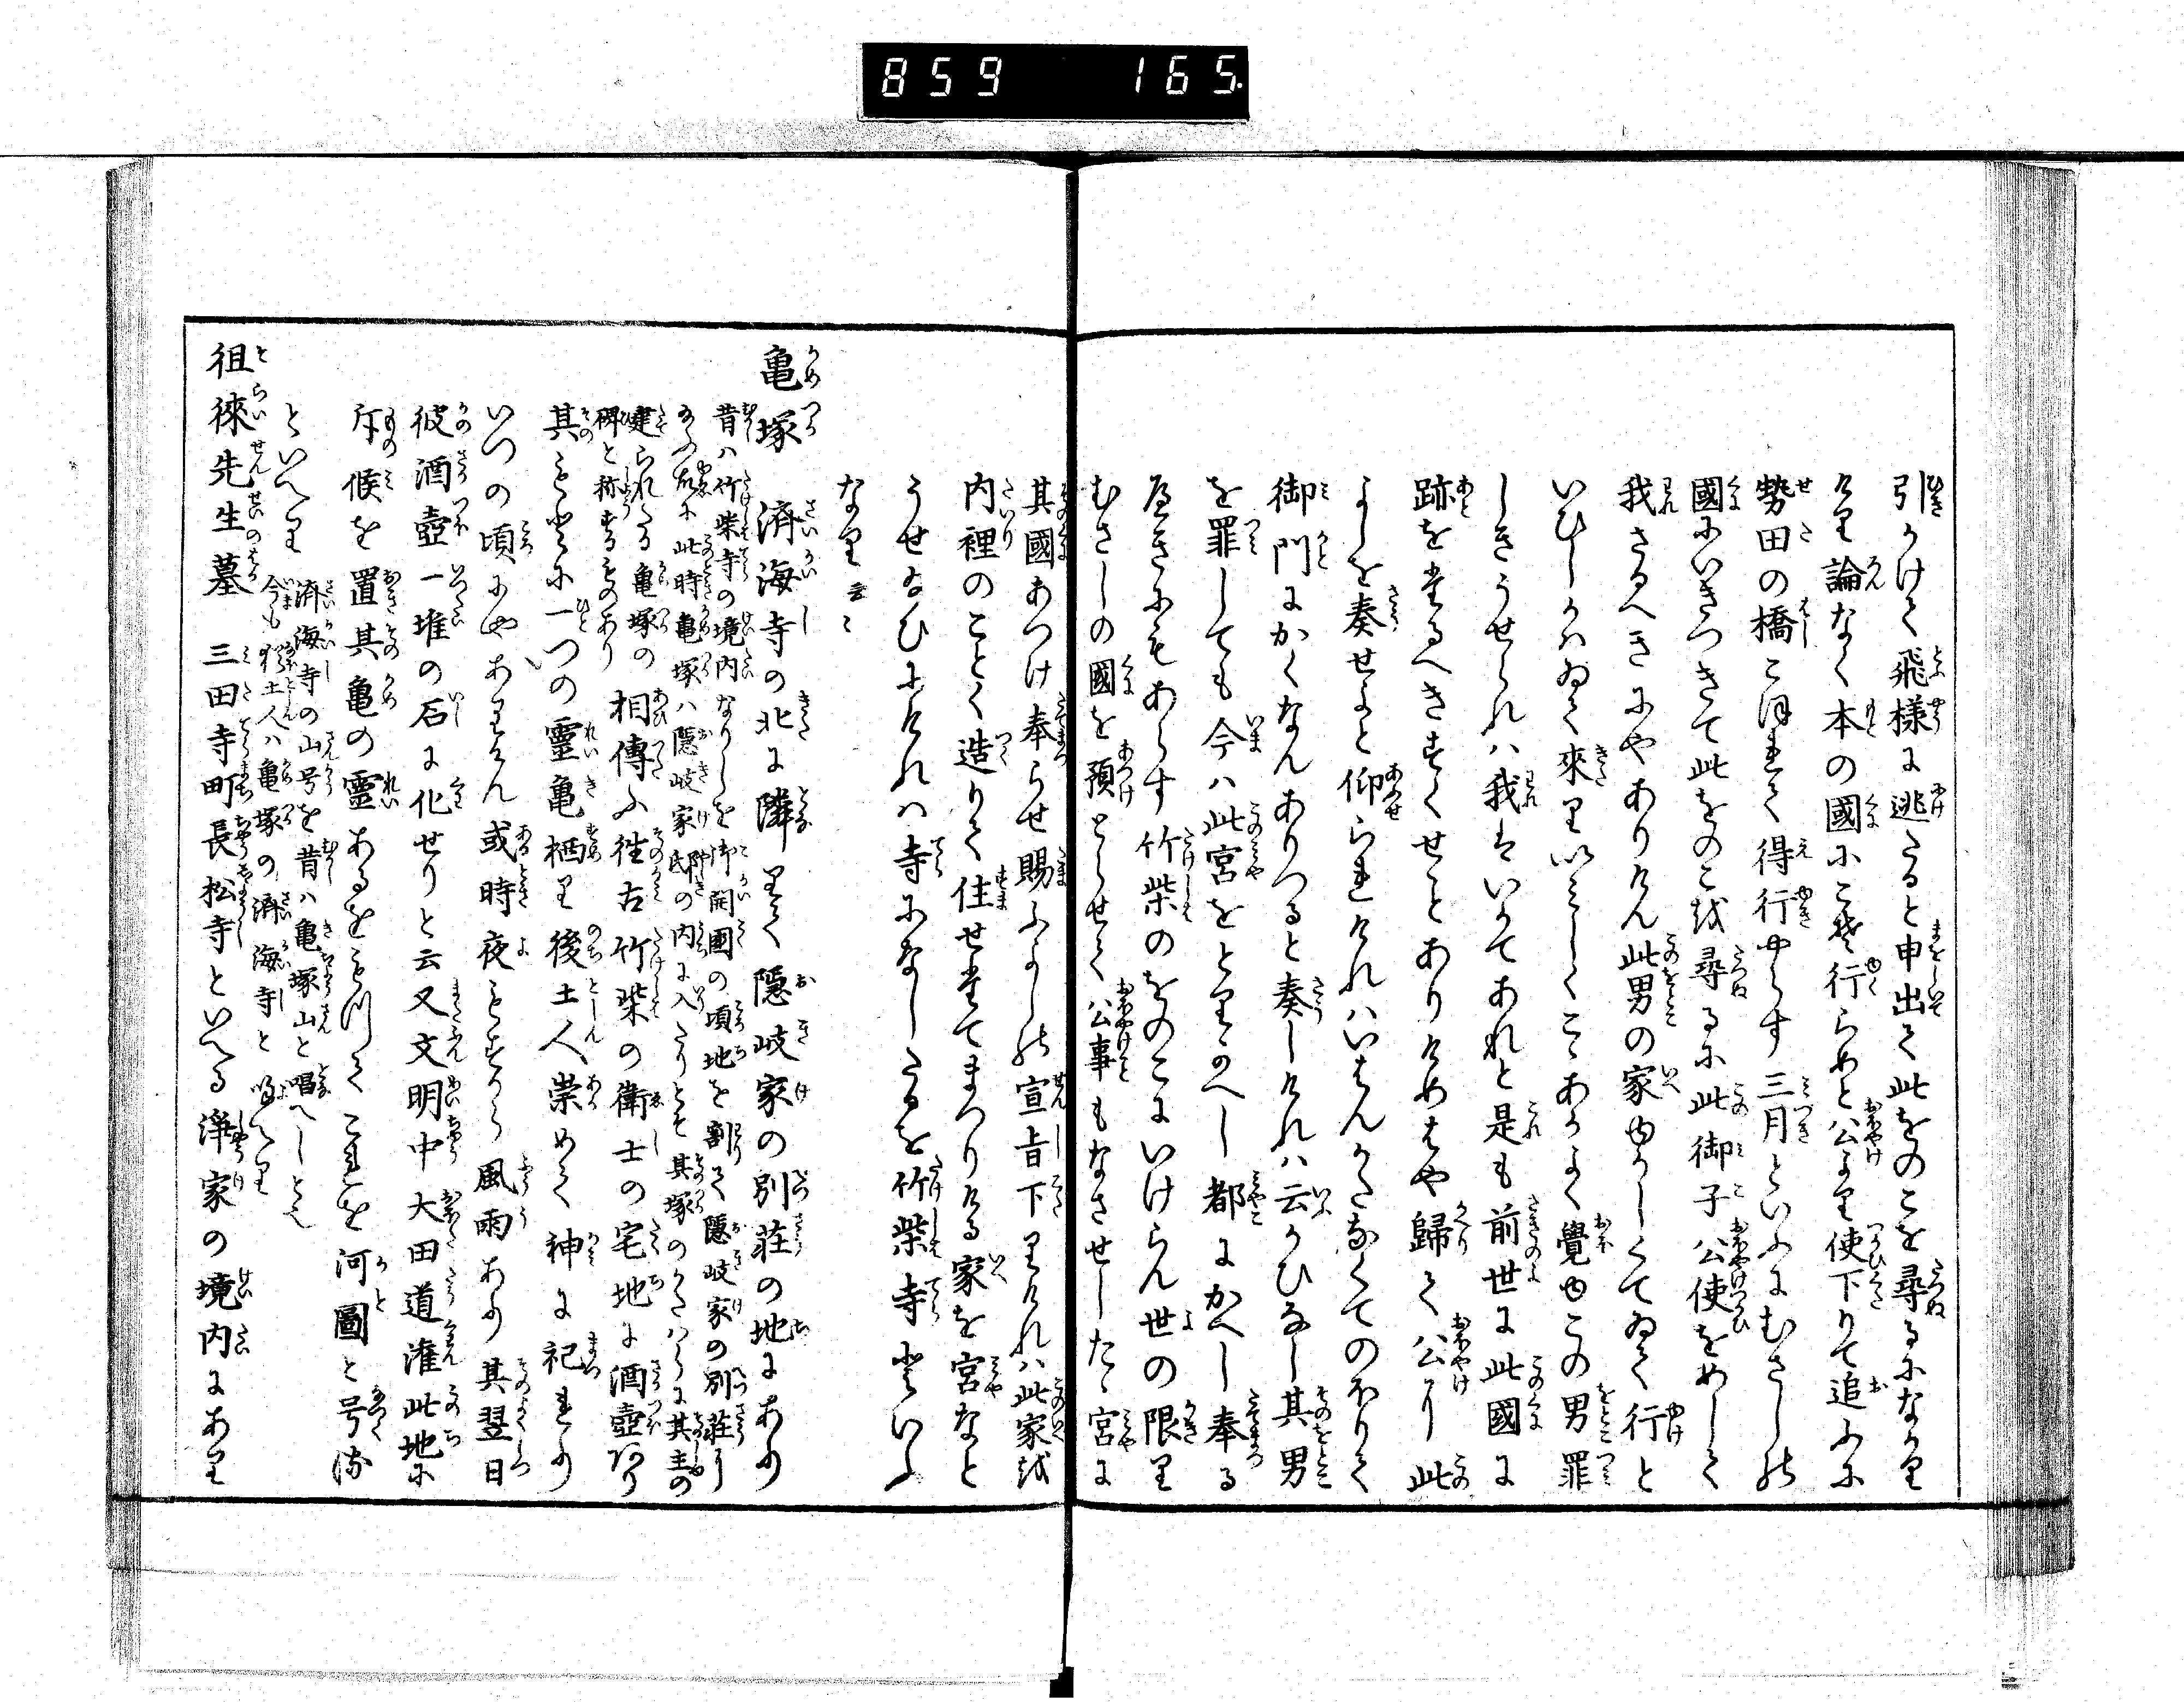 859 165.
引かけて飛様に逃たると申出て此をのこを尋るになかり
けり論なく本の國にこそ行らめと公より使下りて追ふに
勢田の橋こほれて得行やらす三月といふにむさしの
國にいきつきて此をのこを尋るに此御子公使をめして
我さるへきにやありけん此男の家ゆかしくてゐて行と
いひしかはゐて來りいみしくこゝありよく覺ゆこの男罪
しきうせられは我はいかてあれと是も前世に此國に
跡をたるへきすくせこそありけめはや歸て公に此
よしを奏せよと仰られけれはいはんかたなくてのほりて
御門にかくなんありつると奏しけれは云かひなし其男
を罪しても今は此宮をとりかへし都にかへし奉る
へきにもあらす竹柴のをのこにいけらん世の限り
むさしの國を預とらせて公事もなさせしたゝ宮に
其國あつけ奉らせ賜ふよしの宣旨下りけれは此家を
内裡のことく造りて住せたてまつりける家を宮なと
うせなひにけれは寺になしたるを竹柴寺といふ
なり云々
亀塚 済海寺の北に隣りて隠岐家の別荘の地にあり
昔ハ竹柴寺の境内なりしを御開國の頃地を割て隠岐家の別荘に
給ふ故に此時亀塚ハ隠岐家邸の内に入たりとそ其塚のかたハらに其主の
建られたる亀塚の
碑と称するものあり
相傳ふ往古竹柴の衛士の宅地に酒壺ありて
其もとに一つの靈亀栖り後土人崇めて神に祀れり
いつの頃にやありけん或時夜もすから風雨あり其翌日
彼酒壺一堆の石に化せりと云又文明中大田道灌此地に
斥候を置其亀の靈あるをもつてこれを河圖と号す
といへり
済海寺の山号を昔ハ亀塚山と唱へしとそ
今も猶土人ハ亀塚の済海寺と呼へり
徂徠先生墓 三田寺町長松寺といへる浄家の境内にあり